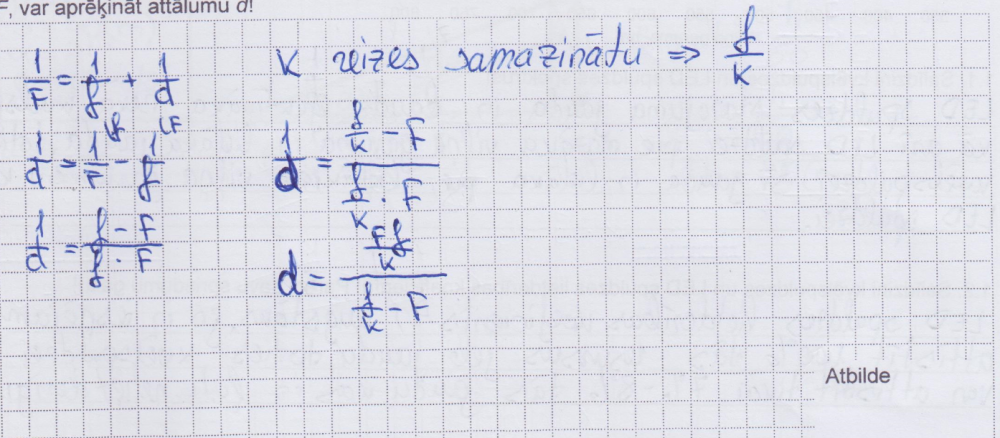 F, var aprēķināt attālumu d!
1/F = 1/f + 1/d
1/d = 1/F - 1/f
1/d = (f - F)/(f · F)
K reizes samazinātu ⇒ f/k
1/d = (f/k - F)/(f/k · F)
d = (Ff/k)/(f/k - F)
Atbilde